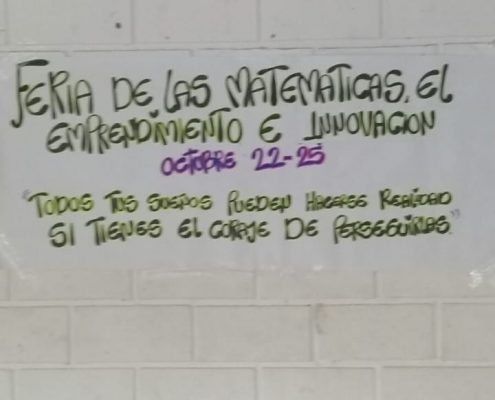 FERIA DE LAS MATEMATICAS, EL
EMPRENDIMIENTO E INNOVACION
OCTUBRE 22-25
"TODOS TUS SUEÑOS PUEDEN HACERSE REALIDAD
SI TIENES EL CORAJE DE PERSEGUIRLOS."